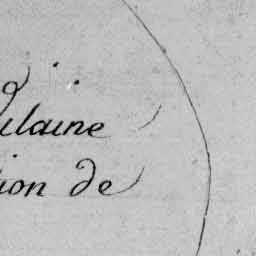 ilaine
ion de